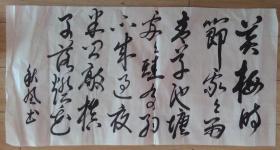 黄梅時
節家々雨
青草池塘
處々蛙有約
不来過夜
半閒敲棋
子落燈花
秋風书